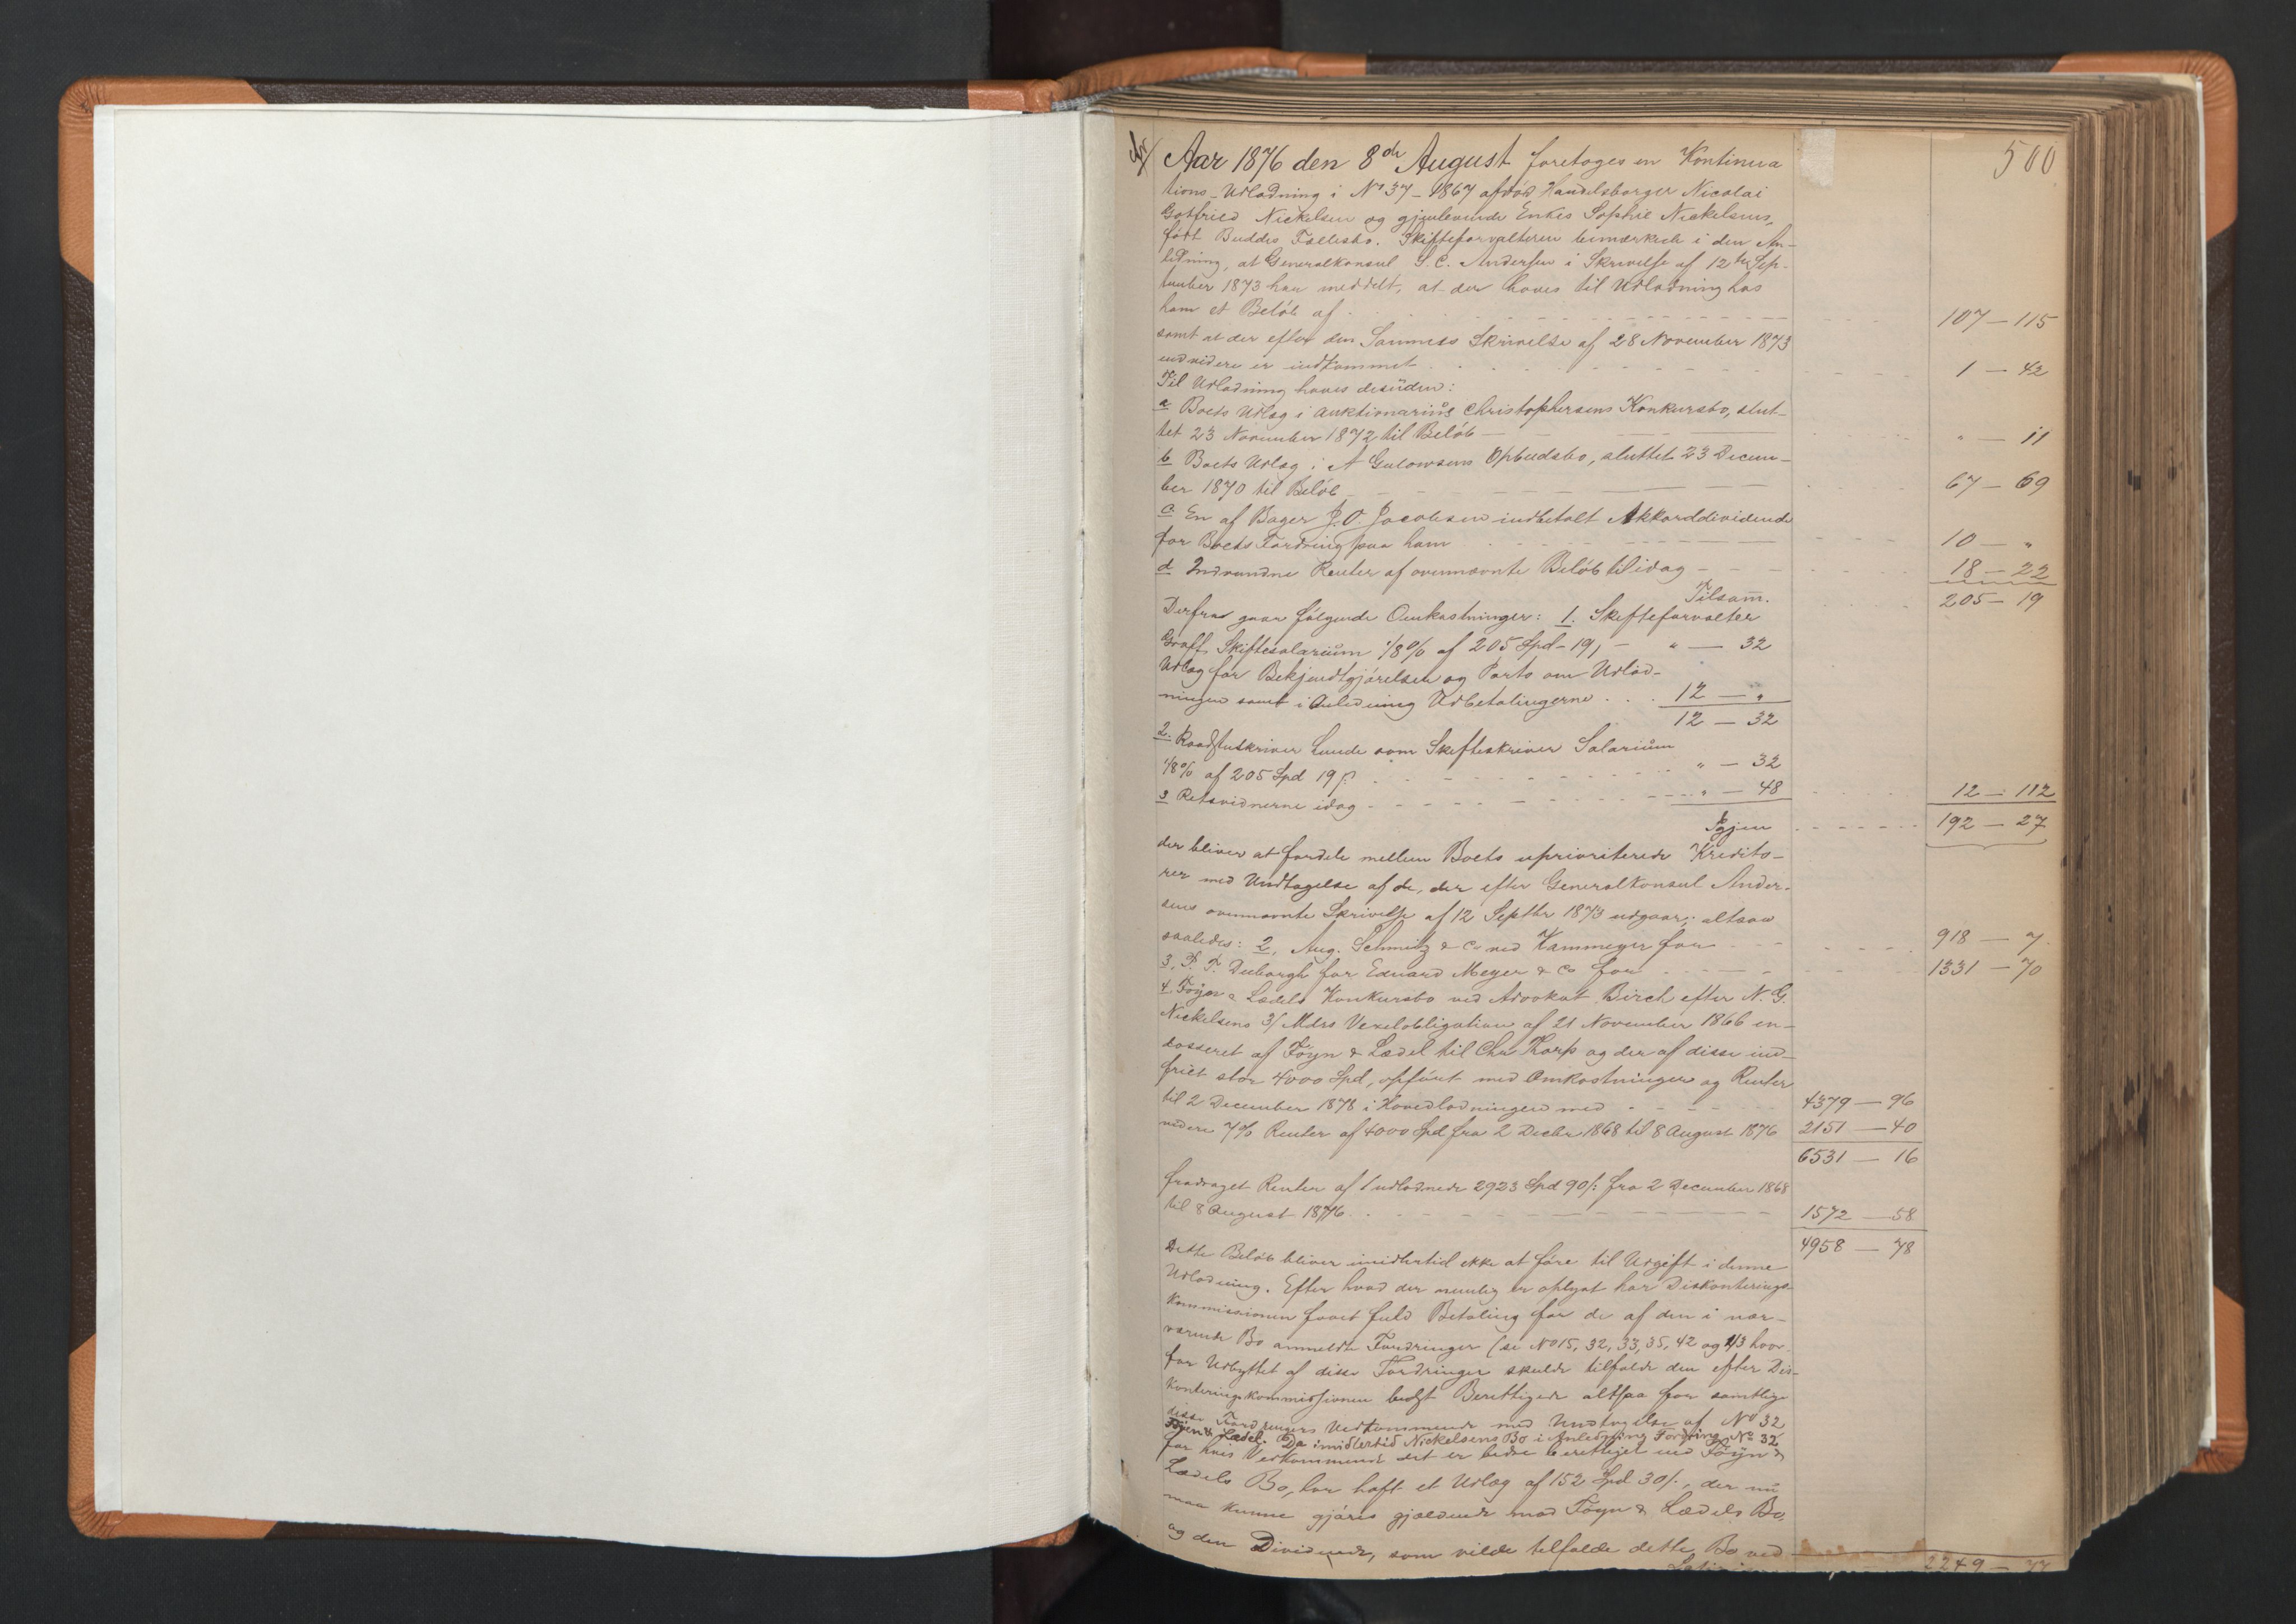 500
Aar 1876 den 8de August foretoges en Kontinua
tions-Udlodning i No 37-1867 afdöd Handelsborger Nicolai
Gotfried Nickelsen og gjenlevende Enkes Sophie Nickelsens,
födt Buddes Fællesbo. Skifteforvalteren bemærkede i den An-
ledning, at Generalkonsul S. C. Andersen i Skrivelse af 12te Sep-
tember 1873 har meddelt, at der haves til Udlodning hos
ham et Belöb af 107 — 115
samt at der efter den Sammes Skrivelse af 28 November 1873
endvidere er indkommet 1 — 42
Til Udlodning haves desuden:
a Boets Udlæg i Auktionarius Christophersens Konkursbo, slut-
tet 23 November 1872 til Belöb " — 11
b Boets Udlæg i A Gulowsens Opbudsbo, sluttet 23 Decem-
ber 1870 til Belöb 67 — 69
c En af Bager J. O. Jacobsen indbetalt Akkorddividende
for Boets Fordring paa ham 10 — "
d Indvundne Renter af ovennævnte Belöb til idag 18 — 22
Tilsam. 205 — 19
Derfra gaar fölgende Omkostninger: 1. Skifteforvalter
Graff Skiftesalarium 1/8 % af 205 Spd - 19, " — 32
Udlæg for Bekjendtgjörelsen og Porto om Udlod-
ningen samt i Anledning Udbetalingerne 12 — "
12 — 32
2. Raadstuskriver Lunde som Skifteskriver Salarium
1/8 % af 205 Spd 19 ß " — 32
3 Retsvidnerne idag " — 48 12 — 112
Igjen 192 — 27
der bliver at fordele mellem Boets uprioriterede Kredito-
rer med Undtagelse af de, der efter Generalkonsul Ander-
sens ovennævnte Skrivelse af 12 Septbr 1873 udgaar; altsaa
saaledes: 2, Aug. Schmitz & Co ved Kammeyer for 918 — 7
3, P. T. Duborgh for Eduard Meyer & Co for 1331 — 70
4 Föyn & Lædels Konkursbo ved Advokat Birch efter N. G.
Nickelsens 3/ Mdrs Vexelobligation af 21 November 1866 en-
dosseret af Föyn & Lædel til Chr Thorp og der af disse ind-
friet stor 4000 Spd, opfört med Omkostninger og Renter
til 2 December 1878 i Hovedlodningen med 4379 — 96
videre 7% Renter af 4000 Spd fra 2 Decbr 1868 til 8 August 1876 2151 — 40
6531 — 16
fradraget Renter af udlodnede 2923 Spd 90 ß: fra 2 December 1868
til 8 August 1876 1572 — 58
4958 — 78
Dette Belöb bliver imidlertid ikke at före til Udgift i denne
Udlodning. Efter hvad der nemlig er oplyst har Diskonterings-
kommissionen faaet fuld Betaling for de af den i nær-
værende Bo anmeldte Fordringer (se No 15, 32, 33, 35, 42 og 43 hvor-
for Udbyttet af disse Fordringer skulde tilfalde den efter Dis-
konteringskommissionen bedst Berettigede altsaa for samtlige
disse Fordringers Vedkommende med Undtagelse af No 32
Föyn & Lædel. Da imidlertid Nickelsens Bo i Anledning Fordring No 32
for hvis Vedkommende det er bedre berettiget end Föyn &
Lædels Bo, har haft et Udlæg af 152 Spd 30 ß, der nu
maa kunne gjöres gjældende mod Föyn & Lædels Bo,
og den Dividende, som vilde tilfalde dette Bo ved
2249 — 77